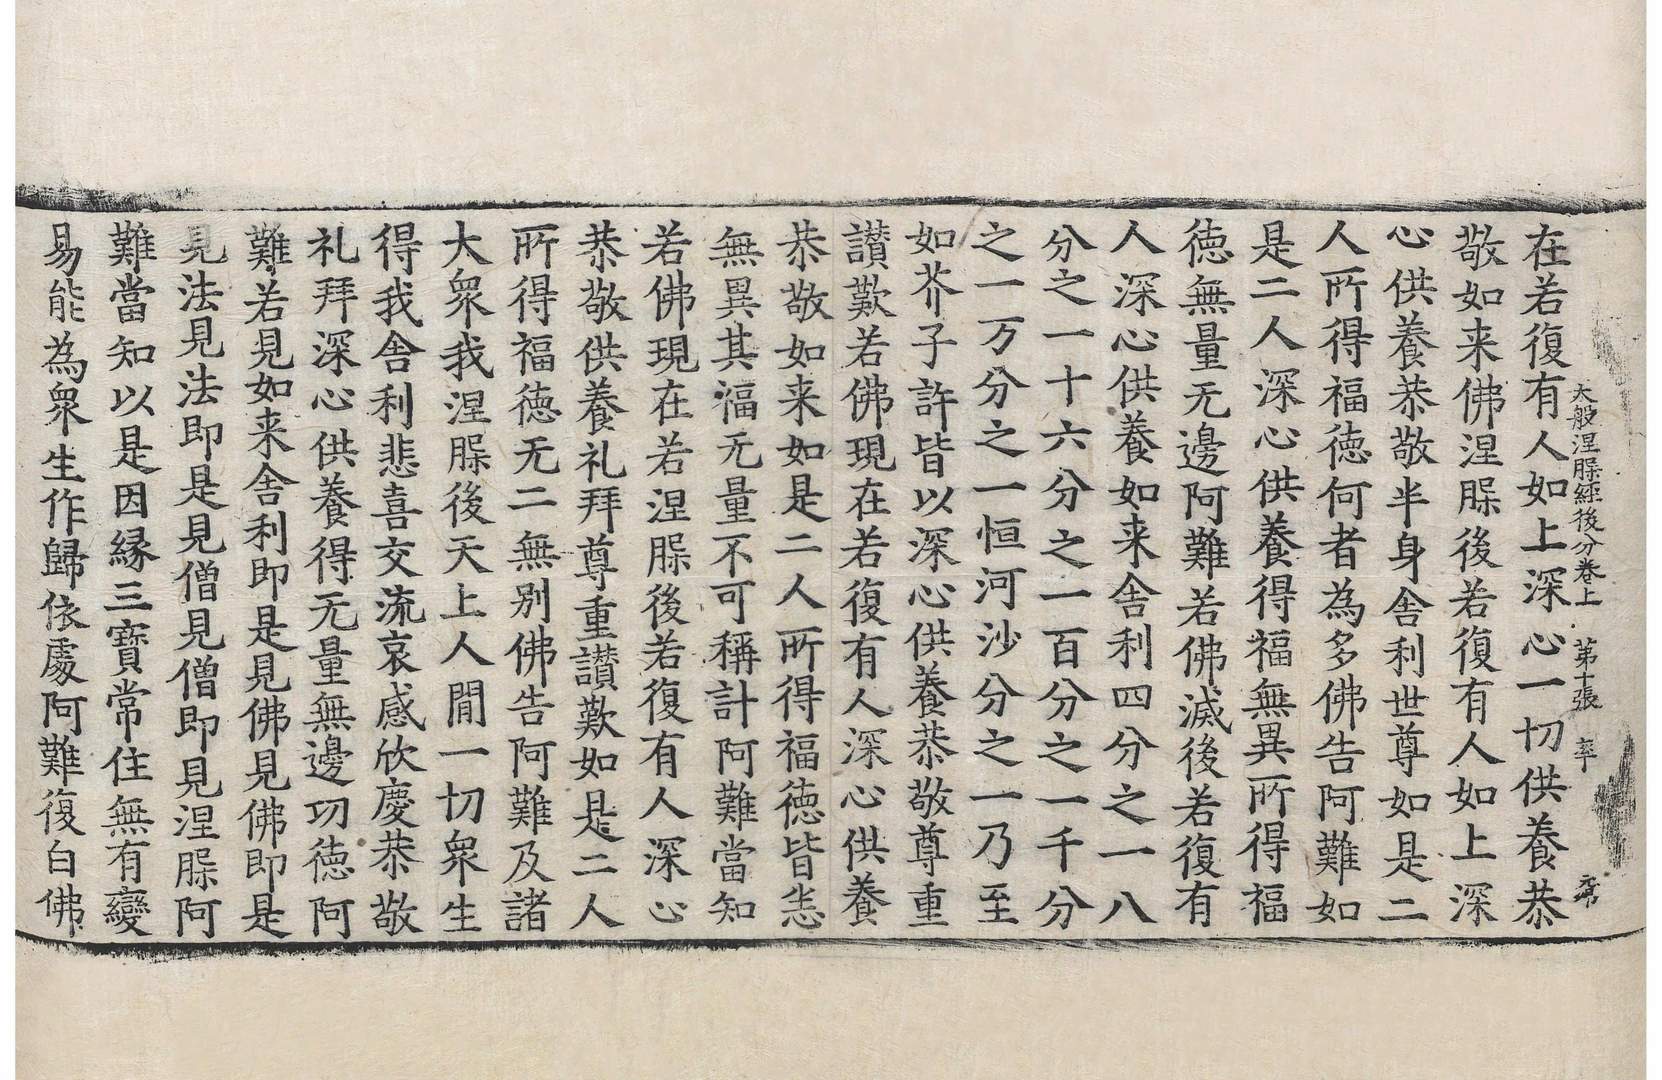 大般涅槃経後分卷上 第十張 率
在若復有人如上深心一切供養恭
敬如来佛涅槃後若復有人如上深
心供養恭敬半身舍利世尊如是二
人所得福徳何者為多佛告阿難如
是二人深心供養得福無異所得福
徳無量无邊阿難若佛滅後若復有
人深心供養如来舍利四分之一八
分之一十六分之一百分之一千分
之一万分之一恒河沙分之一乃至
如芥子許皆以深心供養恭敬尊重
讃歎若佛現在若復有人深心供養
恭敬如来如是二人所得福徳皆悉
無異其福无量不可稱計阿難當知
若佛現在若涅槃後若復有人深心
恭敬供養礼拜尊重讃歎如是二人
所得福徳无二無別佛告阿難及諸
大衆我涅槃後天上人間一切衆生
得我舍利悲喜交流哀感欣慶恭敬
礼拜深心供養得无量無邊功徳阿
難若見如来舍利即是見佛見佛即是
見法見法即是見僧見僧即見涅槃阿
難當知以是因緣三寳常住無有變
易能為衆生作歸依處阿難復白佛